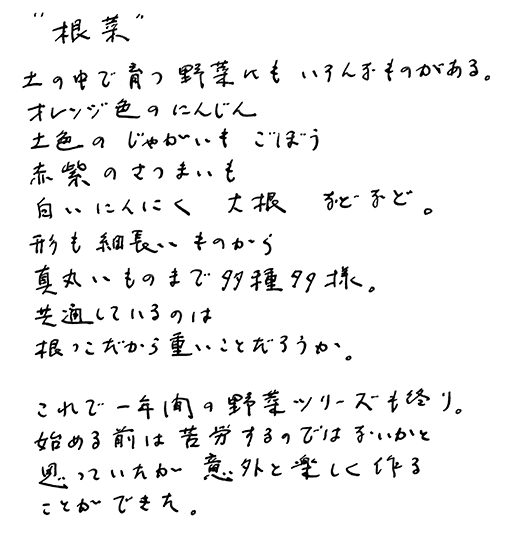 "根菜"
土の中で育つ野菜にもいろんなものがある。
オレンジ色のにんじん
土色のじゃがいも ごぼう
赤紫のさつまいも
白いにんにく 大根 などなど。
形も細長いものから
真丸いものまで多種多様。
共通しているのは
根っこだから重いことだろうか。
これで一年間の野菜シリーズも終り。
始める前は苦労するのではないかと
思っていたが意外と楽しく作る
ことができた。